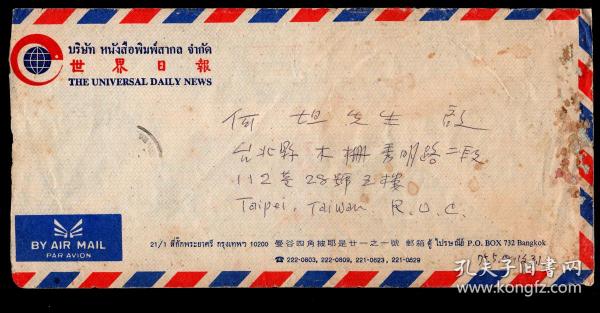 บริษัท หนังสือพิมพ์สากล จำกัด
世界日報
THE UNIVERSAL DAILY NEWS
何坦先生 啟
台北縣木柵秀明路二段
112巷28號五樓
Taipei, Taiwan R.O.C.
BY AIR MAIL
PAR AVION
21/1 สี่พระยาตรี กรุงเทพฯ 10200 曼谷四角披耶是廿一之一號 郵箱 ตู้ ไปรษณีย์ P.O. BOX 732 Bangkok
☎ 222-0803, 222-0809, 221-0623, 221-0529
孔夫子旧书网
www.kongfz.com